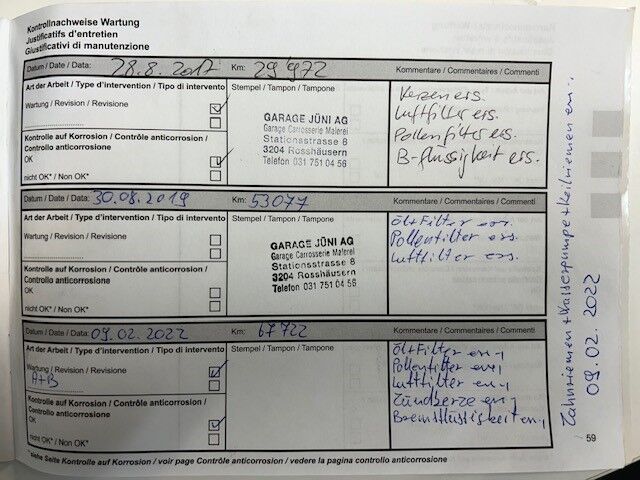 Kontrollnachweise Wartung
Justificatifs d'entretien
Giustificativi di manutenzione
Datum / Date / Data: 28.8.2017 Km: 29'972 Kommentare / Commentaires / Commenti
Art der Arbeit / Type d'intervention / Tipo di intervento
Stempel / Tampon / Tampone
Wartung / Revision / Revisione
Kontrolle auf Korrosion / Contrôle anticorrosion /
Controllo anticorrosione
OK
nicht OK* / Non OK*
GARAGE JÜNI AG
Garage Carrosserie Malerei
Stationsstrasse 8
3204 Rosshäusern
Telefon 031 751 04 56
Kerzen ers.
Luftfilter ers.
Pollenfilter ers.
B-flüssigkeit ers.
Datum / Date / Data: 30.08.2019 Km: 53077 Kommentare / Commentaires / Commenti
Art der Arbeit / Type d'intervention / Tipo di intervento
Stempel / Tampon / Tampone
Wartung / Revision / Revisione
Kontrolle auf Korrosion / Contrôle anticorrosion /
Controllo anticorrosione
OK
nicht OK* / Non OK*
GARAGE JÜNI AG
Garage Carrosserie Malerei
Stationsstrasse 8
3204 Rosshäusern
Telefon 031 751 04 56
Öl+Filter ers.
Pollenfilter ers.
Luftfilter ers.
Datum / Date / Data: 09.02.2022 Km: 67722 Kommentare / Commentaires / Commenti
Art der Arbeit / Type d'intervention / Tipo di intervento
Stempel / Tampon / Tampone
Wartung / Revision / Revisione
A+B
Kontrolle auf Korrosion / Contrôle anticorrosion /
Controllo anticorrosione
OK
nicht OK* / Non OK*
Öl+Filter
Pollenfilter
Luftfilter
Zündkerze
Bremsflüssigkeit
*siehe Seite Kontrolle auf Korrosion / voir page Contrôle anticorrosion / vedere la pagina controllo anticorrosione
59
Zahnriemen+Wasserpumpe+Keilriemen
09.02.2022